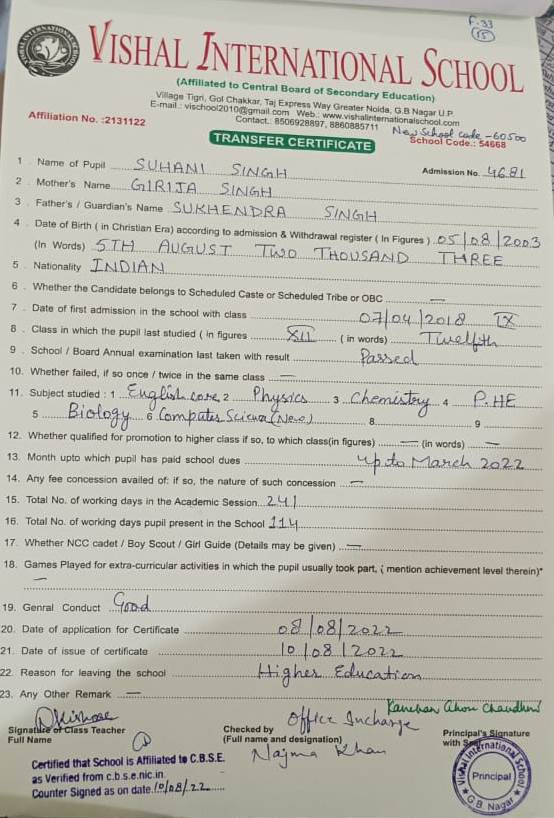 F-33
(15)
VISHAL INTERNATIONAL SCHOOL
(Affiliated to Central Board of Secondary Education)
Village Tigri, Gol Chakkar, Taj Express Way Greater Noida, G.B Nagar U.P.
E-mail.: vischool2010@gmail.com Web.: www.vishalinternationalschool.com
Contact.: 8506928897, 8860885711
Affiliation No. :2131122
New School Code - 60500
TRANSFER CERTIFICATE
School Code.: 54668
1 . Name of Pupil SUHANI SINGH Admission No. 4681
2 . Mother's Name GIRIJA SINGH
3 . Father's / Guardian's Name SUKHENDRA SINGH
4 . Date of Birth ( in Christian Era) according to admission & Withdrawal register ( In Figures ) 05/08/2003
(In Words) 5TH AUGUST TWO THOUSAND THREE
5 . Nationality INDIAN
6 . Whether the Candidate belongs to Scheduled Caste or Scheduled Tribe or OBC —
7 . Date of first admission in the school with class 07/04/2018 IX
8 . Class in which the pupil last studied ( in figures XII ( in words) Twelfth
9 . School / Board Annual examination last taken with result Passed
10. Whether failed, if so once / twice in the same class —
11. Subject studied : 1 English core 2 Physics 3 Chemistry 4 P.HE
5 Biology 6 Computer Science (New) 8 9
12. Whether qualified for promotion to higher class if so, to which class(in figures) — (in words) —
13. Month upto which pupil has paid school dues up to March 2022
14. Any fee concession availed of: if so, the nature of such concession —
15. Total No. of working days in the Academic Session 241
16. Total No. of working days pupil present in the School 114
17. Whether NCC cadet / Boy Scout / Girl Guide (Details may be given) —
18. Games Played for extra-curricular activities in which the pupil usually took part, ( mention achievement level therein)*
—
19. Genral Conduct Good
20. Date of application for Certificate 08/08/2022
21. Date of issue of certificate 10/08/2022
22. Reason for leaving the school Higher Education
23. Any Other Remark —
Signature of Class Teacher
Full Name
Checked by Office Incharge
(Full name and designation)
Najma Khan
Principal's Signature
with Seal
Certified that School is Affiliated to C.B.S.E.
as Verified from c.b.s.e.nic.in
Counter Signed as on date 10/08/22
Vishal International School
Principal
G.B. Nagar